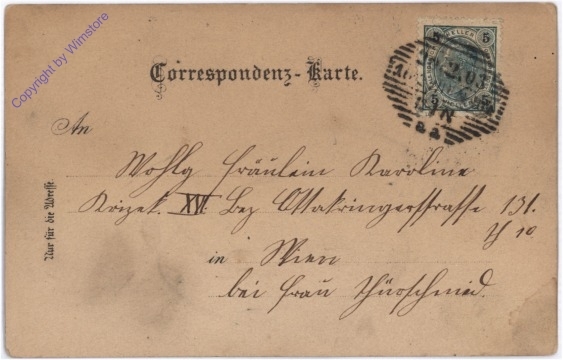 Copyright by Wimstore
5 HELLER 5
Correspondenz-Karte.
An
Wohlg Fräulein Karoline
Krizek. XVI. Bez Ottakringerstrasse 131.
10
in Wien
bei Frau Thürschmied.
Nur für die Adresse.